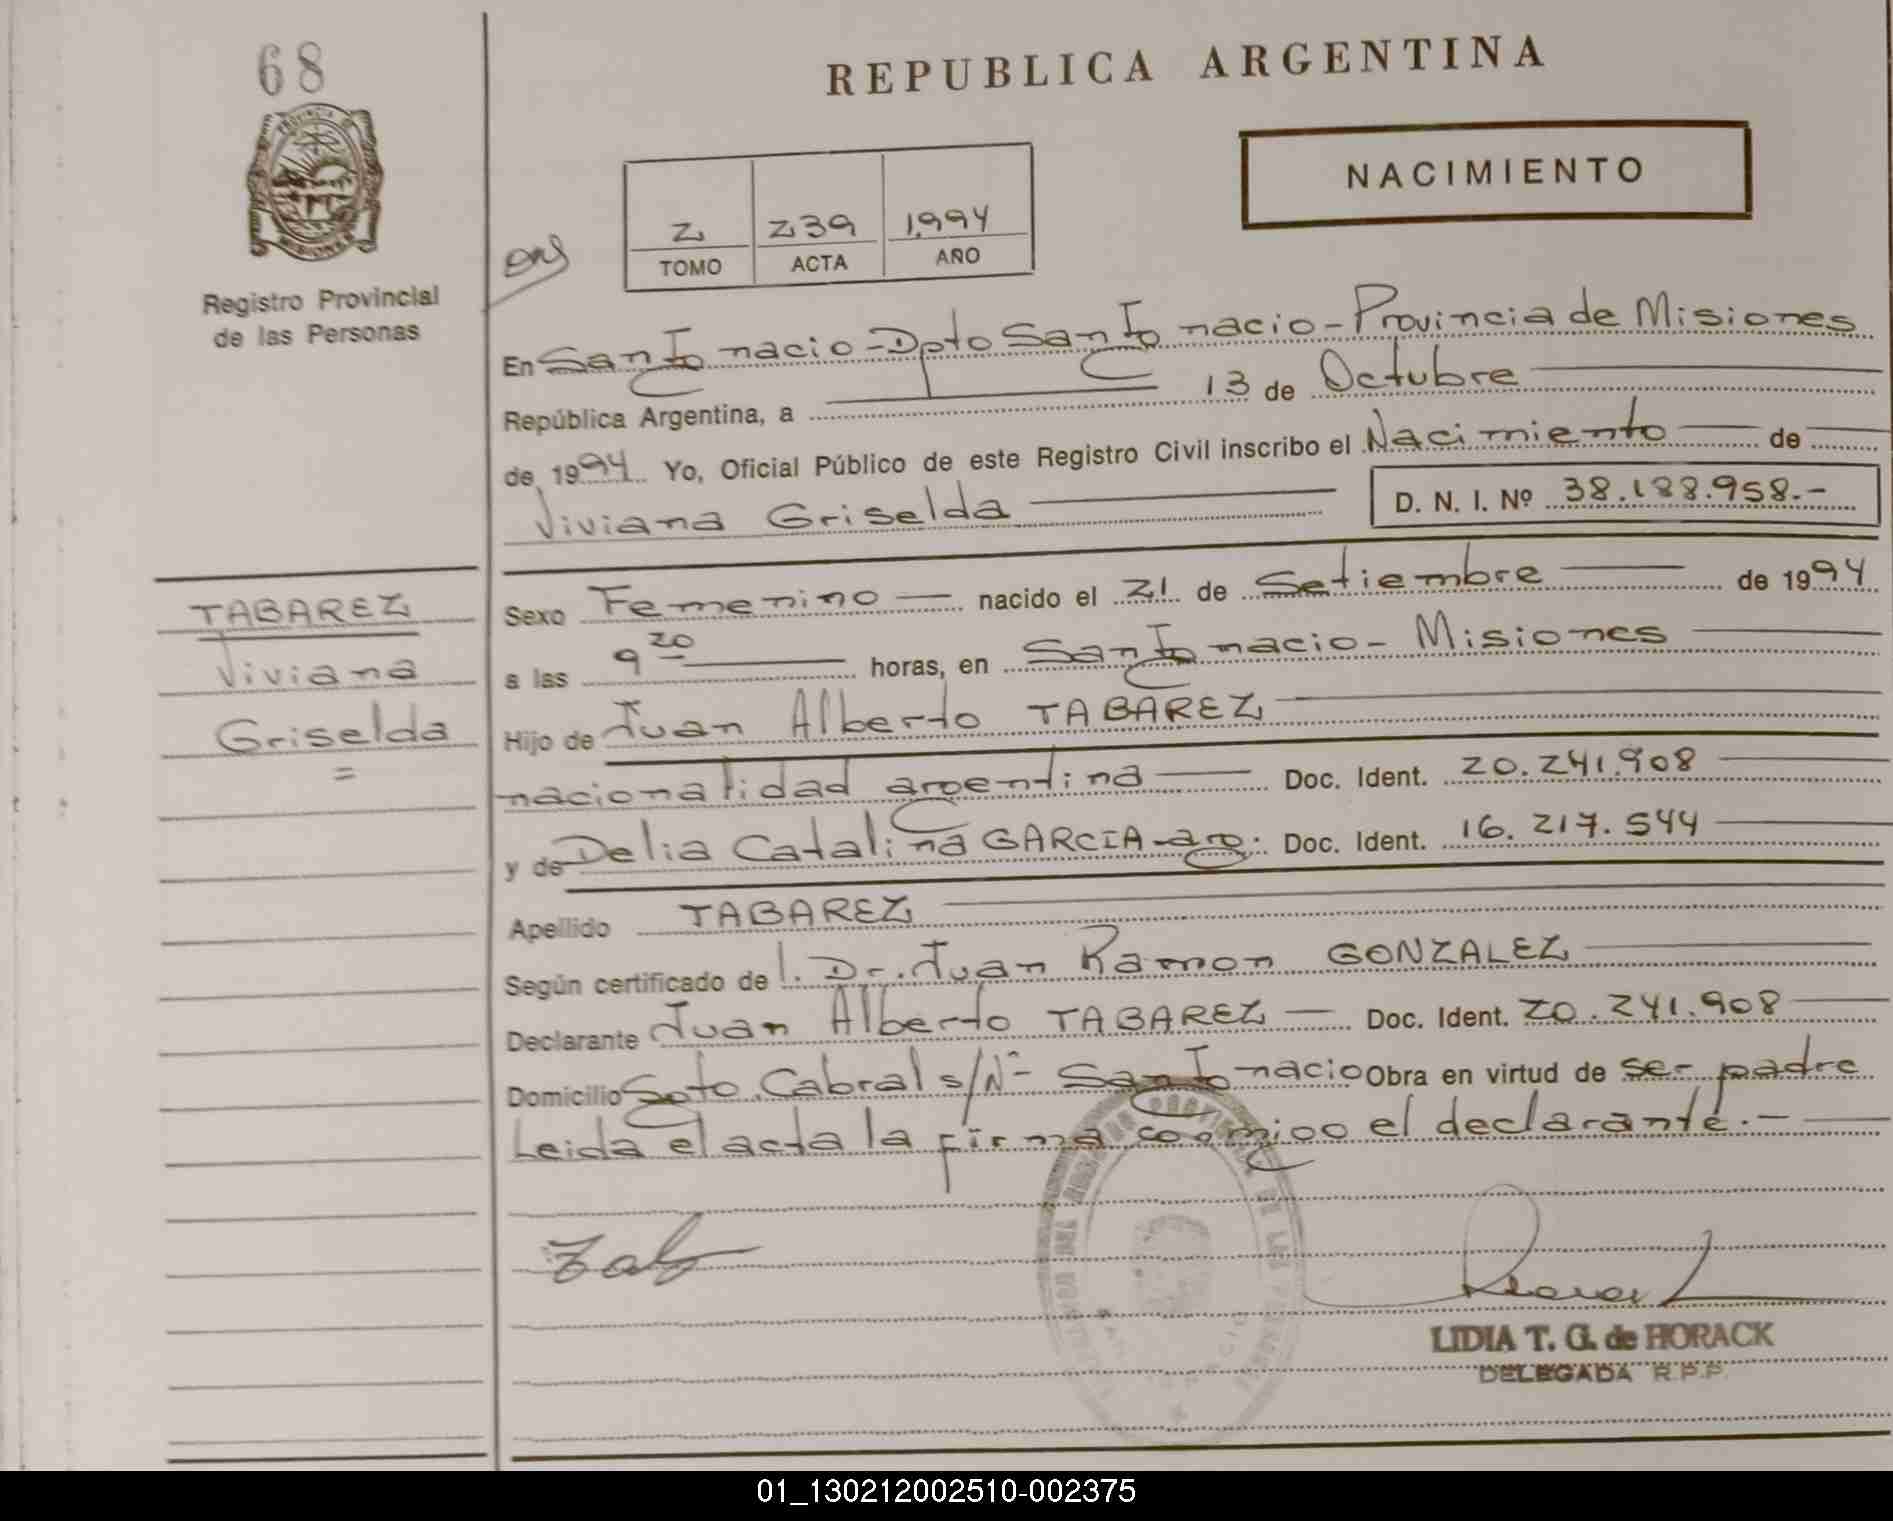 68
REPUBLICA ARGENTINA
NACIMIENTO
2 239 1994
TOMO ACTA AÑO
Registro Provincial
de las Personas
En San Ignacio - Dpto San Ignacio - Provincia de Misiones
República Argentina, a 13 de Octubre
de 1994 Yo, Oficial Público de este Registro Civil inscribo el Nacimiento de
Viviana Griselda D. N. I. Nº 38.188.958.-
TABAREZ
Viviana
Griselda
=
Sexo Femenino nacido el 21 de Setiembre de 1994
a las 9 20 horas, en San Ignacio - Misiones
Hijo de Juan Alberto TABAREZ
nacionalidad argentina Doc. Ident. 20.241.908
y de Delia Catalina GARCIA - arg. Doc. Ident. 16.217.544
Apellido TABAREZ
Según certificado de l. Dr. Juan Ramon GONZALEZ
Declarante Juan Alberto TABAREZ Doc. Ident. 20.241.908
Domicilio Sgto. Cabral s/Nº San Ignacio Obra en virtud de ser padre
Leida el acta la firma conmigo el declarante.-
LIDIA T. G. de HORACK
DELEGADA R.P.P.
01_130212002510-002375